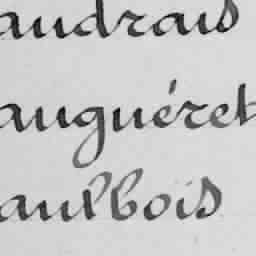 audrais
auguéret
aulbois